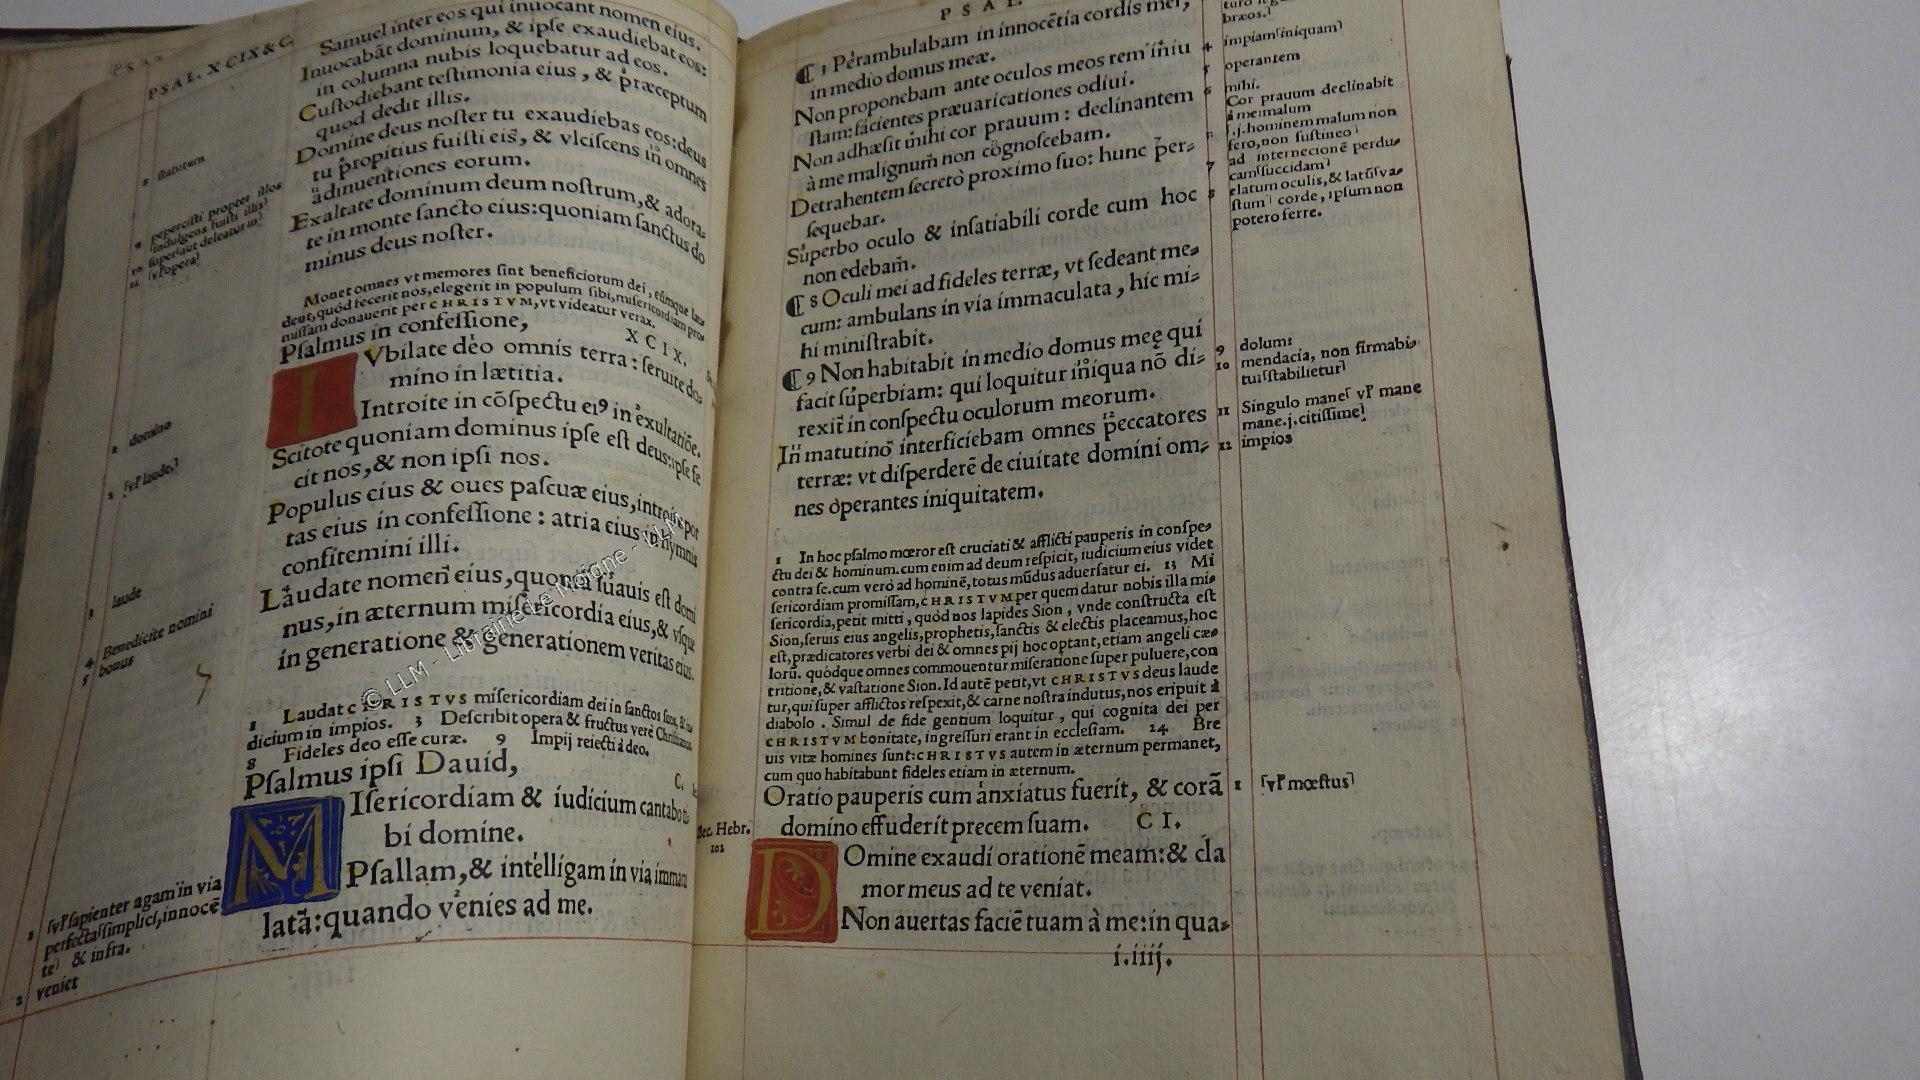 PSAL. XCIX & C.
Samuel inter eos qui inuocant nomen eius.
Inuocabāt dominum, & ipse exaudiebat eos:
in columna nubis loquebatur ad eos.
Custodiebant testimonia eius, & præceptum
quod dedit illis.
Domine deus noster tu exaudiebas eos: deus
tu propitius fuisti eis, & vlciscens in omnes
adinuentiones eorum.
Exaltate dominum deum nostrum, & adora-
te in monte sancto eius: quoniam sanctus do
minus deus noster.
statutum
pepercisti propter illos
indulgens fuisti illis
super
opera
Monet omnes vt memores sint beneficiorum dei, eúmque lau
dent, quòd fecerit nos, elegerit in populum sibi, misericordiam pro
missam donauerit per CHRISTVM, vt videatur verax.
Psalmus in confessione,
XCIX.
IVbilate deo omnis terra: seruite do-
mino in lætitia.
Introite in cōspectu ei9 in exultatiōe.
Scitote quoniam dominus ipse est deus: ipse fe
cit nos, & non ipsi nos.
Populus eius & oues pascuæ eius, introite por
tas eius in confessione: atria eius in hymnis
confitemini illi.
Laudate nomen eius, quoniā suauis est domi
nus, in æternum misericordia eius, & vsque
in generatione & generationem veritas eius.
2 domino
3 laude
4 Benedicite nomini
5 bonus
1 Laudat CHRISTVS misericordiam dei in sanctos suos, & iu
dicium in impios. 3 Describit opera & fructus verè Christianos
8 Fideles deo esse curæ. 9 Impij reiecti à deo.
Psalmus ipsi Dauid,
C.
MIsericordiam & iudicium cantabo ti
bi domine.
Psallam, & intelligam in via immacu
latā: quando venies ad me.
1 sapienter agam in via
perfecta simplici, innocē
te & infra.
2 veniet
PSAL.
¶ 3 Perambulabam in innocētia cordis mei,
in medio domus meæ.
Non proponebam ante oculos meos rem iniu
stam: facientes præuaricationes odiui.
Non adhæsit mihi cor prauum: declinantem
à me malignum non cognoscebam.
Detrahentem secretò proximo suo: hunc per-
sequebar.
Superbo oculo & insatiabili corde cum hoc
non edebam.
¶ 8 Oculi mei ad fideles terræ, vt sedeant me-
cum: ambulans in via immaculata, hic mi-
hi ministrabit.
¶ 9 Non habitabit in medio domus meę qui
facit superbiam: qui loquitur iniqua nō di-
rexit in conspectu oculorum meorum.
In matutino interficiebam omnes peccatores
terræ: vt disperderē de ciuitate domini om-
nes operantes iniquitatem.
bræos.
4 impiam iniquam
5 operantem
6 mihi.
Cor prauum declinabit
à me: malum
.j. hominem malum non
fero, non sustineo
7 ad internecionē perdu-
cam succidam
8 elatum oculis, & latū va-
stum corde, ipsum non
potero ferre.
9 dolum:
10 mendacia, non firmabi-
tur stabilietur
11 Singulo mane vl mane
mane .j. citissime
12 impios
1 In hoc psalmo mœror est cruciati & afflicti pauperis in conspe-
ctu dei & hominum. cum enim ad deum respicit, iudicium eius videt
contra se. cum verò ad hominē, totus mūdus aduersatur ei. 13 Mi
sericordiam promissam, CHRISTVM per quem datur nobis illa mi-
sericordia, petit mitti, quòd nos lapides Sion, vnde constructa est
Sion, seruis eius angelis, prophetis, sanctis & electis placeamus, hoc
est, prædicatores verbi dei & omnes pij hoc optant, etiam angeli cæ-
lorū. quódque omnes commouentur miseratione super puluere, con
tritione, & vastatione Sion. Id autē petit, vt CHRISTVS deus laude
tur, qui super afflictos respexit, & carne nostra indutus, nos eripuit à
diabolo. Simul de fide gentium loquitur, qui cognita dei per
CHRISTVM bonitate, ingressuri erant in ecclesiam. 24 Bre
uis vitæ homines sunt: CHRISTVS autem in æternum permanet,
cum quo habitabunt fideles etiam in æternum.
Oratio pauperis cum anxiatus fuerit, & corā
domino effuderit precem suam. CI.
1 vl mœstus
Sec. Hebr.
102
DOmine exaudi orationē meam: & cla
mor meus ad te veniat.
Non auertas faciē tuam à me: in qua-
i.iiij.
© LLM - Librairie Le Moine - LLM